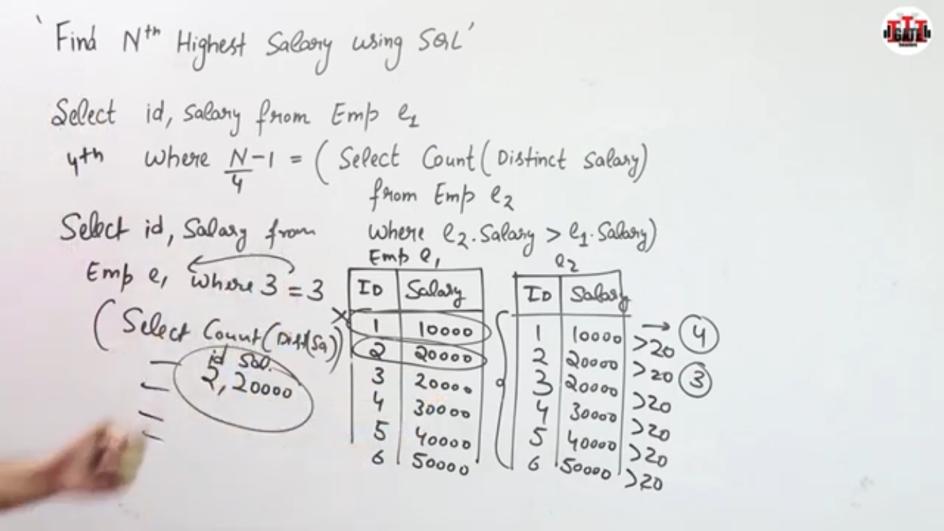 'Find Nth Highest Salary using SQL'
Select id, Salary from Emp e1
4th where N-1 = ( Select Count(Distinct Salary)
4
from Emp e2
where e2.Salary > e1.Salary)
Select id, Salary from
Emp e1 where 3 = 3
( Select Count(Dist(Sa))
id Sal.
2, 20000
Emp e1
ID Salary
1 10000
2 20000
3 20000
4 30000
5 40000
6 50000
e2
ID Salary
1 10000 >20 → 4
2 20000 >20 3
3 20000 >20
4 30000 >20
5 40000 >20
6 50000 >20
GATE